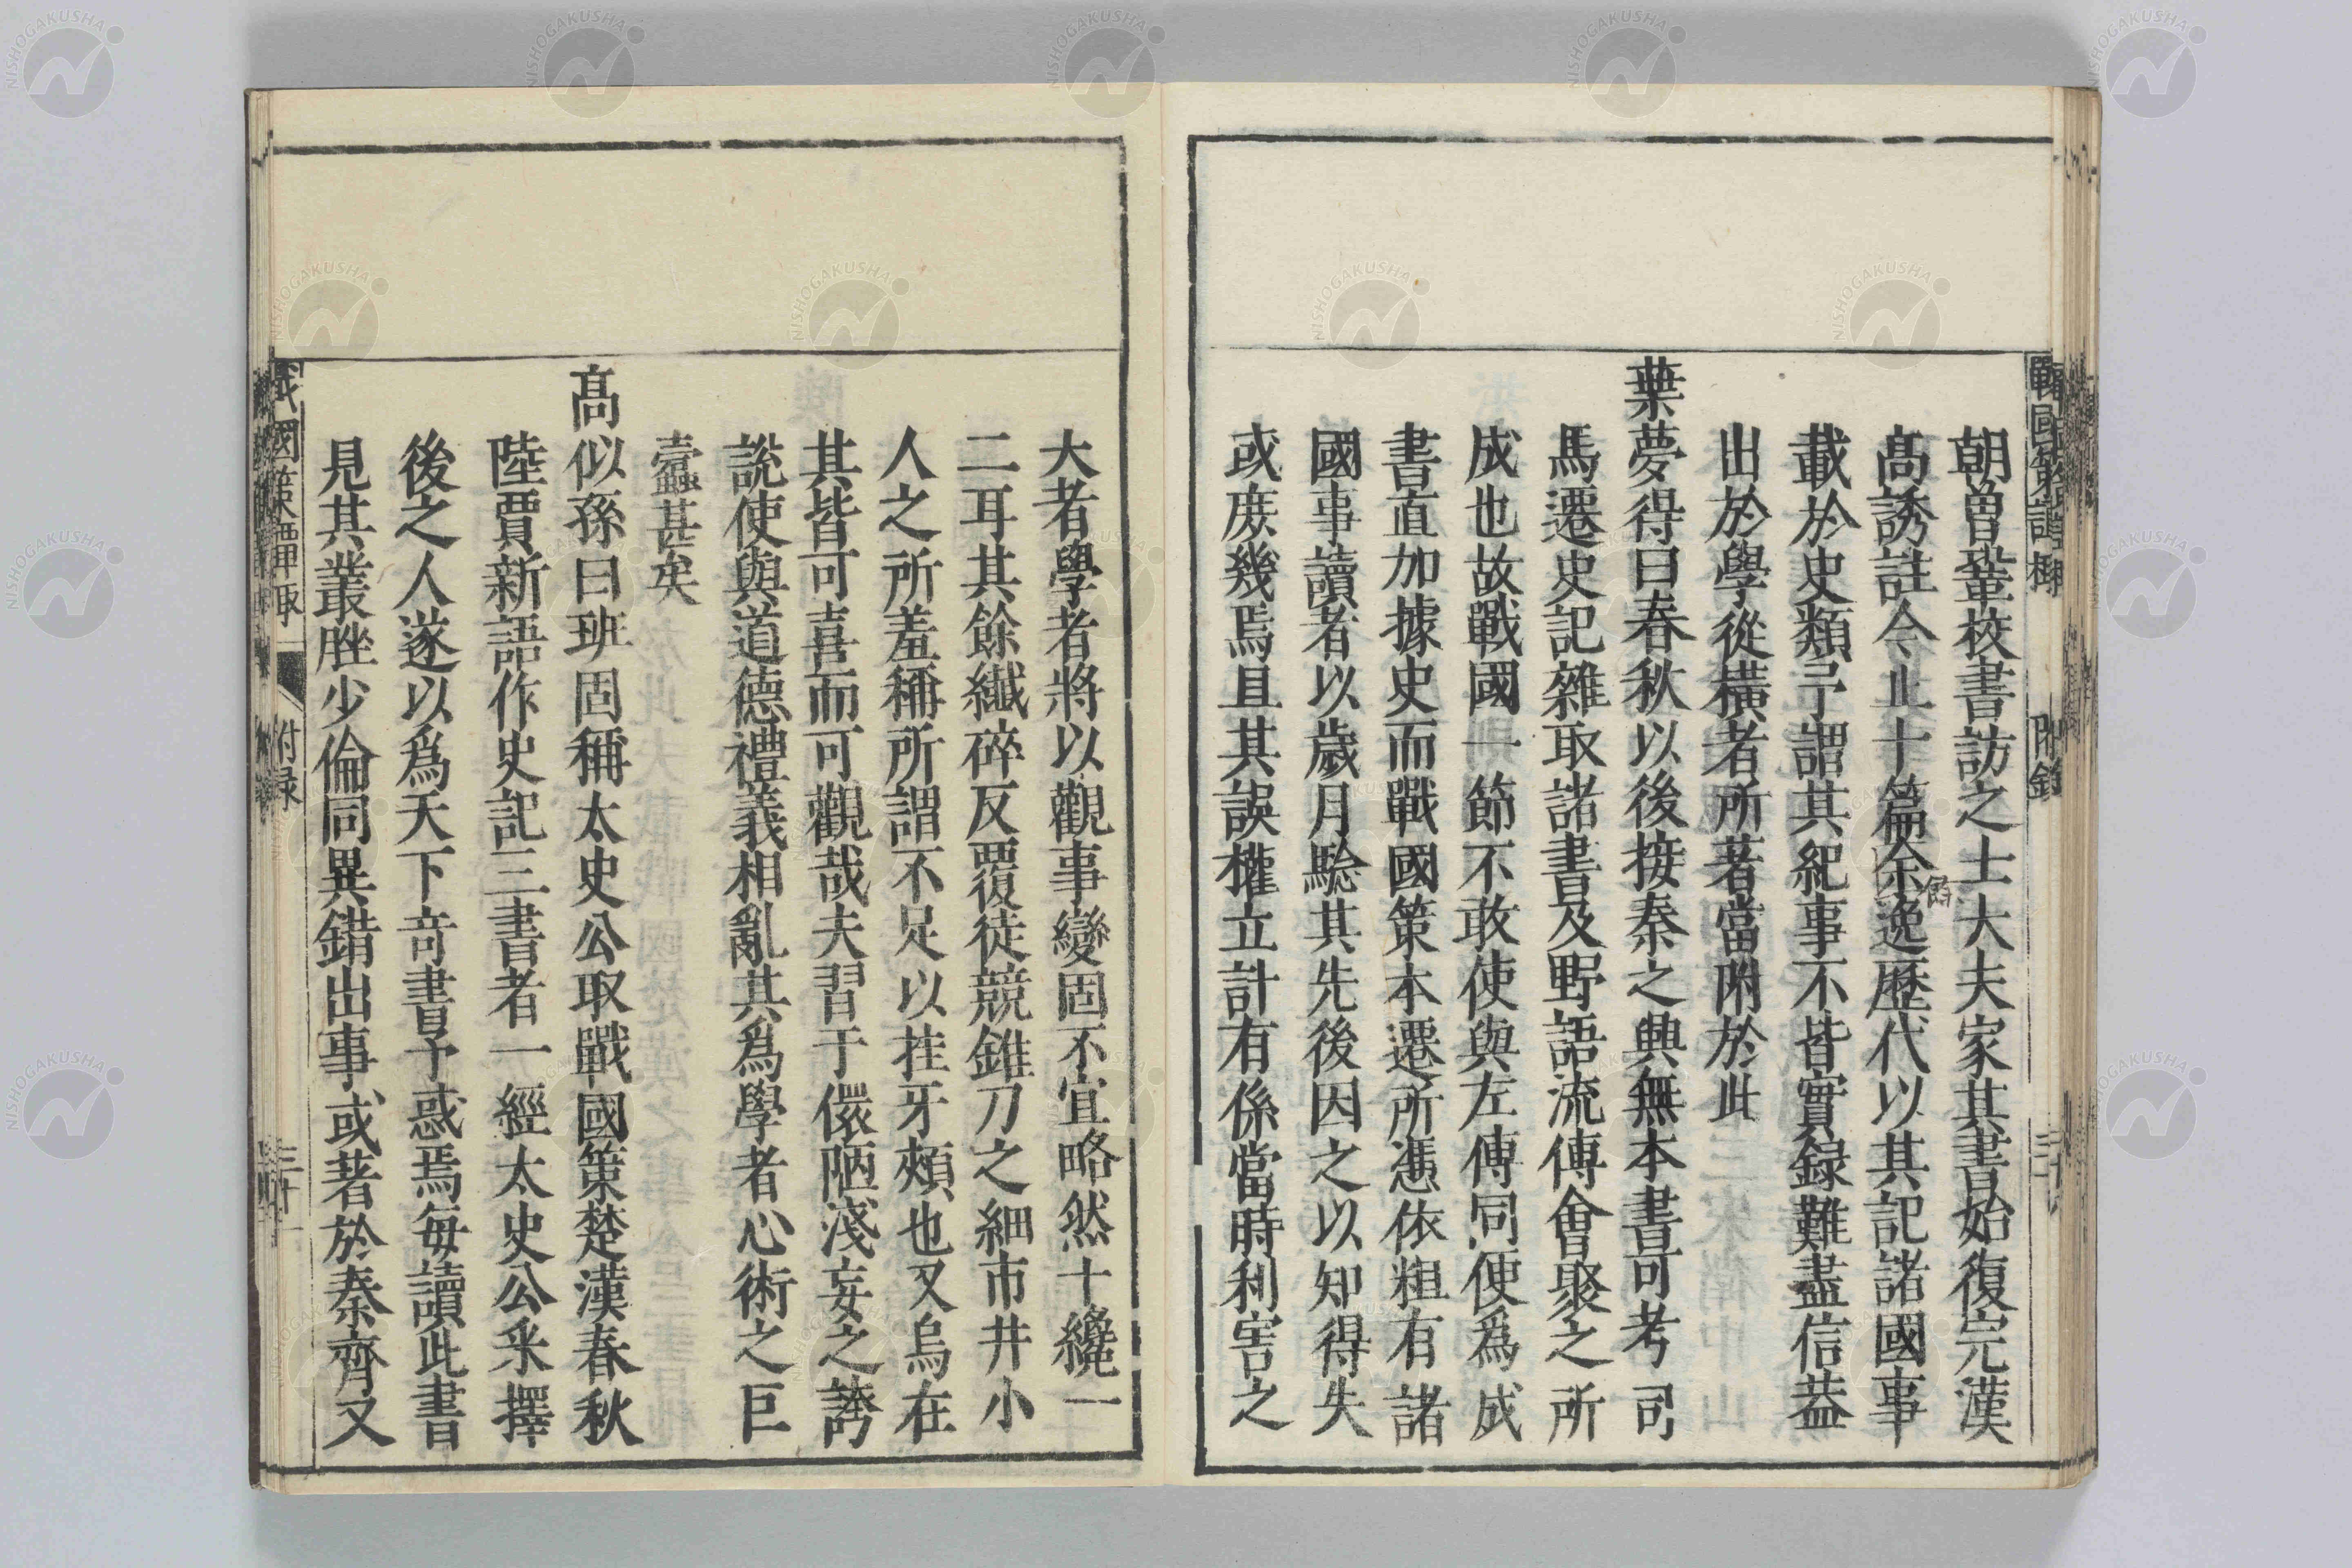 朝曾鞏校書訪之士大夫家其書始復完漢
高誘註今止十篇余逸歷代以其記諸國事
載於史類予謂其紀事不皆實録難盡信葢
出於學從橫者所著當附於此
葉夢得曰春秋以後接秦之興無本書可考司
馬遷史記雜取諸書及野語流傳會聚之所
成也故戰國一節不敢使與左傳同便爲成
書直加據史而戰國策本遷所憑依粗有諸
國事讀者以歲月驗其先後因之以知得失
或庶幾焉且其設權立計有係當時利害之
大者學者將以觀事變固不宜略然十纔一
二耳其餘纎碎反覆徒競錐刀之細市井小
人之所羞稱所謂不足以挂牙頰也又烏在
其皆可喜而可觀哉夫習于儇陋淺妄之誇
說使與道德禮義相亂其爲學者心術之巨
蠧甚矣
髙似孫曰班固稱太史公取戰國策楚漢春秋
陸賈新語作史記三書者一經太史公采擇
後之人遂以爲天下竒書予惑焉每讀此書
見其叢脞少倫同異錯出事或著於秦齊又
附録
三十一
NISHOGAKUSHA